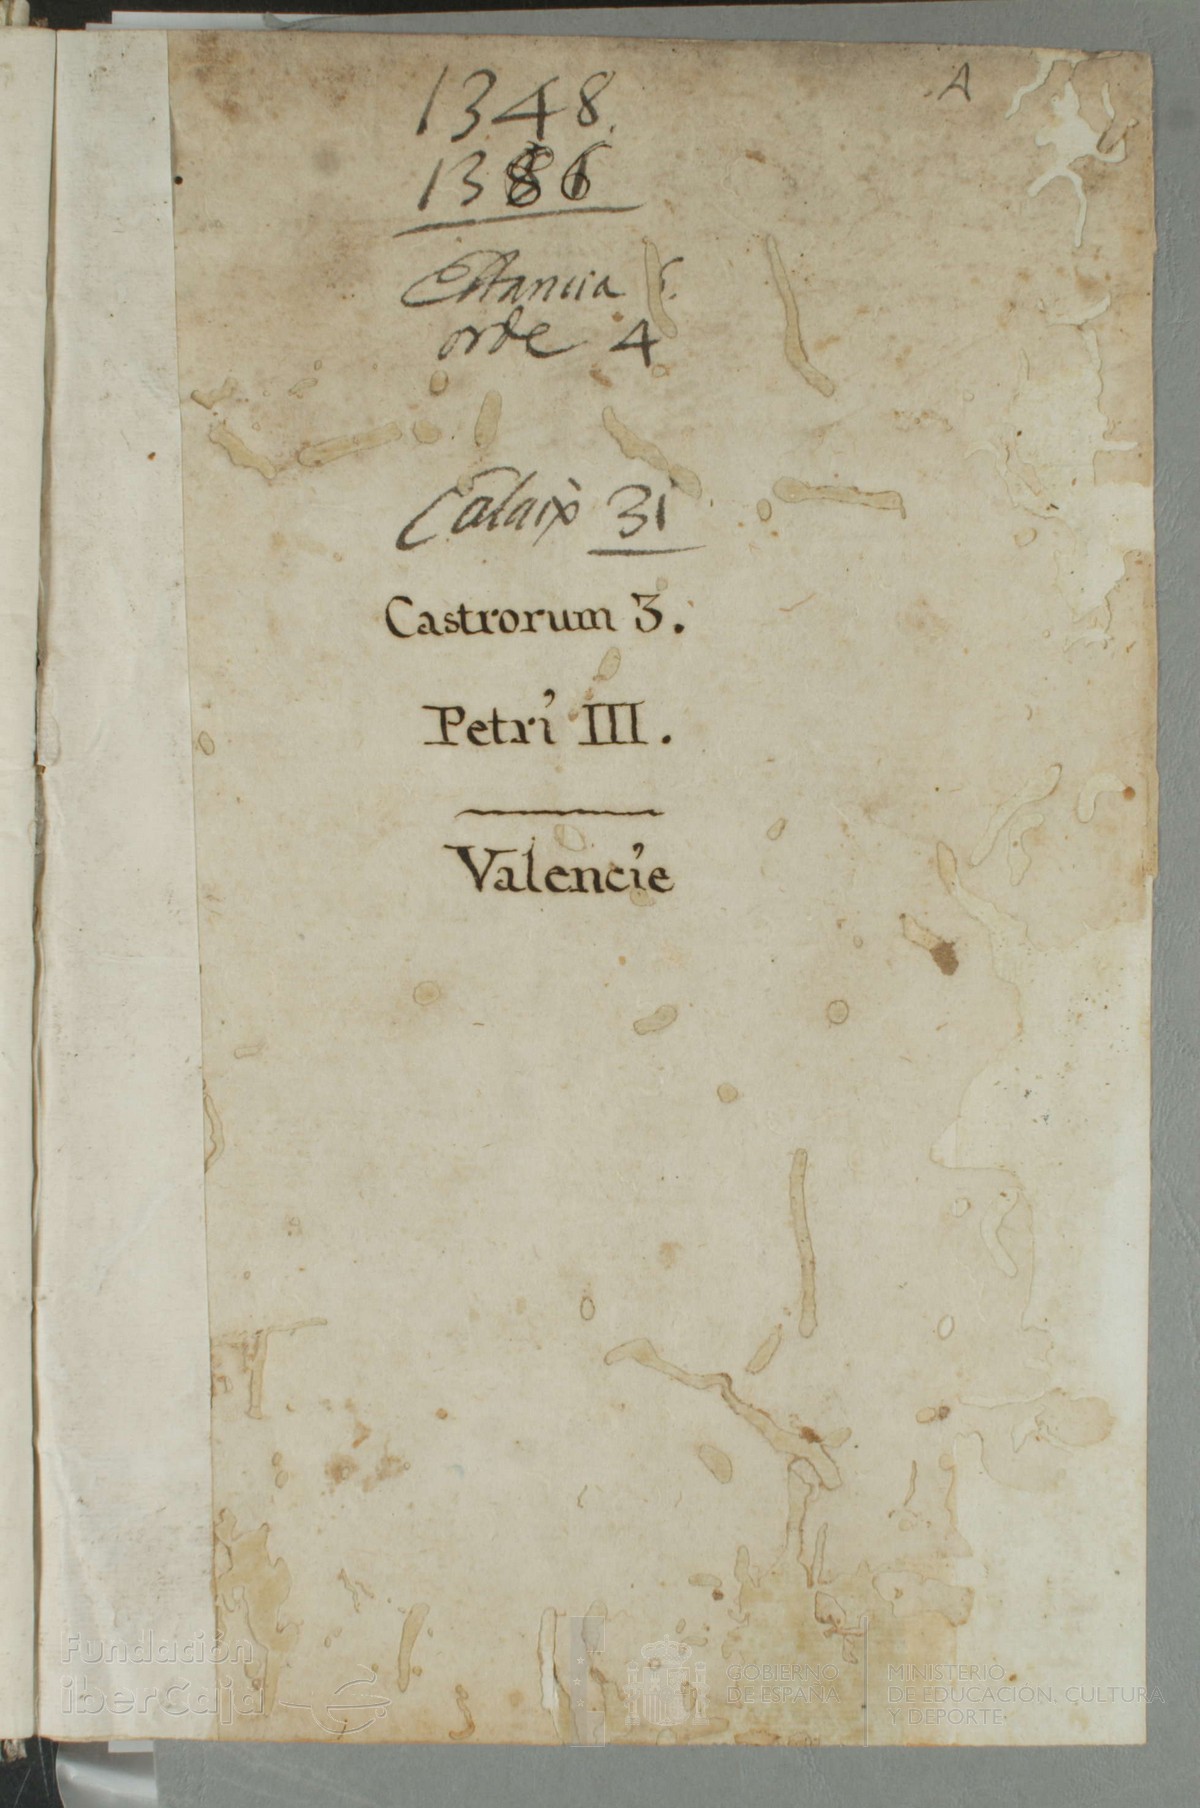 A
1348.
1386
Estancia
orde 4
Calaix 31
Castrorum 3.
Petri III.
Valencie
Fundación
iberCaja
GOBIERNO
DE ESPAÑA
MINISTERIO
DE EDUCACIÓN, CULTURA
Y DEPORTE